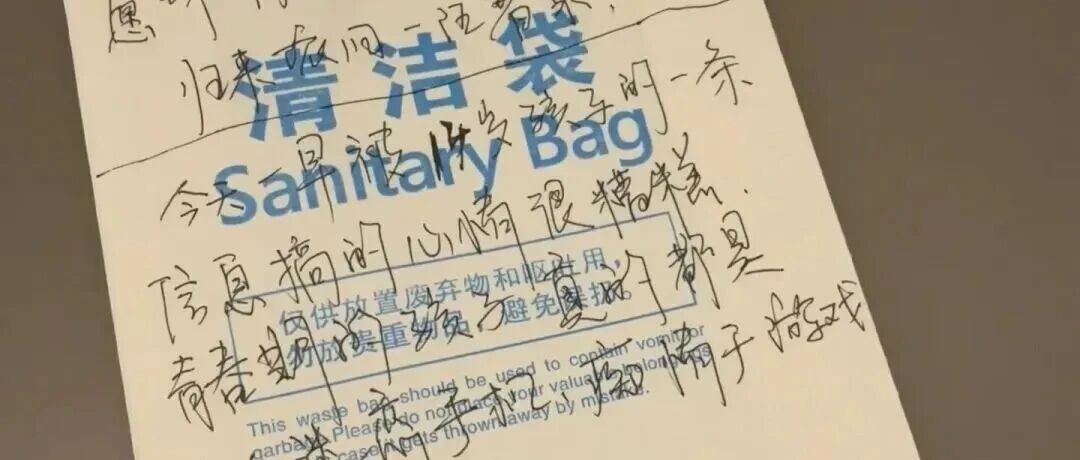 愿
归来依旧
清洁袋
Sanitary Bag
今天一早被14岁孩子的一条
信息搞的心情很糟糕.
仅供放置废弃物和呕吐用,
勿放贵重物品, 避免误扔。
青春期的孩子真的都是
This waste bag should be used to contain vomit or
garbage. Please do not place your valuable belongings
in case it gets thrown away by mistake.
迷恋手机、痴情于游戏